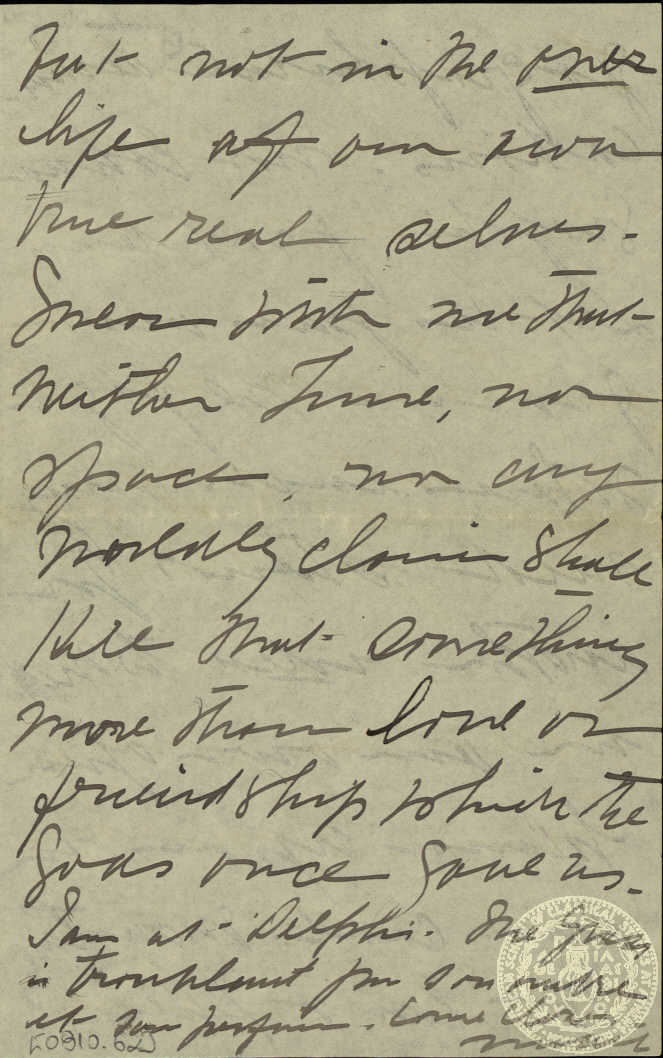 but not in the one
life of our own
true real selves -
Swear with me that
neither Time, nor
space, nor any
worldly claim shall
kill that something
more than love or
friendship which the
Gods once gave us.
I am at Delphi. The
is troublant par son
et son parfum. Come